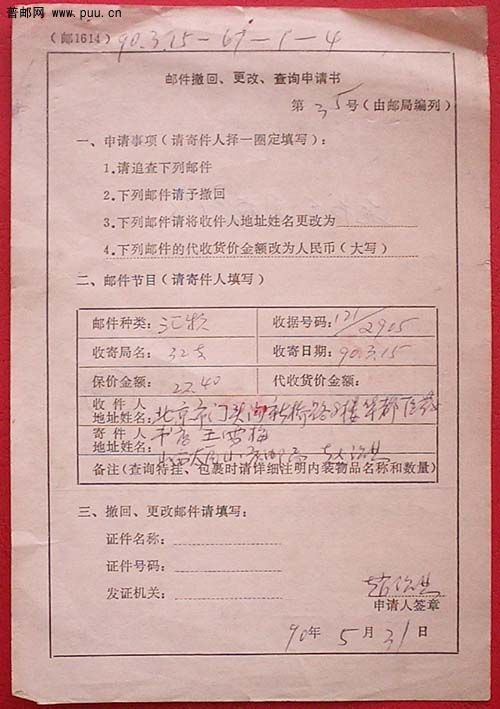 普邮网
www.puu.cn
(邮1614) 90.3.15-67-1-4
邮件撤回、更改、查询申请书
第35号(由邮局编列)
一、申请事项(请寄件人择一圈定填写):
1.请追查下列邮件
2.下列邮件请予撤回
3.下列邮件请将收件人地址姓名更改为
4.下列邮件的代收货价金额改为人民币(大写)
二、邮件节目(请寄件人填写)
邮件种类: 汇款 收据号码: 121/2905
收寄局名: 32支 收寄日期: 90.3.15
保价金额: 22.40 代收货价金额:
收件人
地址姓名: 北京市门头沟 桥路8楼华都
寄件人 书店王雪梅
地址姓名: 山西大同
备注(查询特挂、包裹时请详细注明内装物品名称和数量)
三、撤回、更改邮件请填写:
证件名称:
证件号码:
发证机关:
申请人签章
90年5月31日